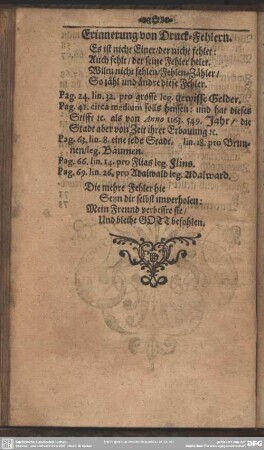 Erinnerung von Druck-Fehlern.
Es ist nicht Einer/der nicht fehlet:
Auch fehlt/der seine Fehler heelet.
Wilen nicht fehlen/Fehlen-Zähler/
So zähl und ändre diese Fehler.
Pag. 24. lin. 32. pro grosse leg. gewisse Gelder.
Pag. 41. circa medium sols heissen: und hat dieses
Stifft ec. als von Anno 1163. 549. Jahr/ die
Stadt aber von Zeit ihrer Erbauung ec.
Pag. 63. lin. 8. eine jede Stadt. lin. 18. pro Brun-
nen/leg. Bäumen.
Pag. 66. lin. 14. pro Flias leg. Flins.
Pag. 69. lin. 26, pro Adalwald leg. Adalward.
Die mehre Fehler hie
Seyn dir selbst unverholen:
Mein Freund verbessre sie/
Und bleibe GOTT befohlen.
DFG